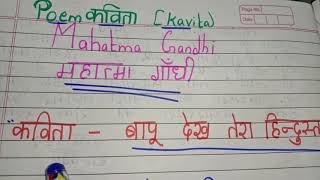 Poem कविता (Kavita)
Page No.
Date
Mahatma Gandhi
महात्मा गाँधी
"कविता - बापू देख तेरा हिन्दुस्त